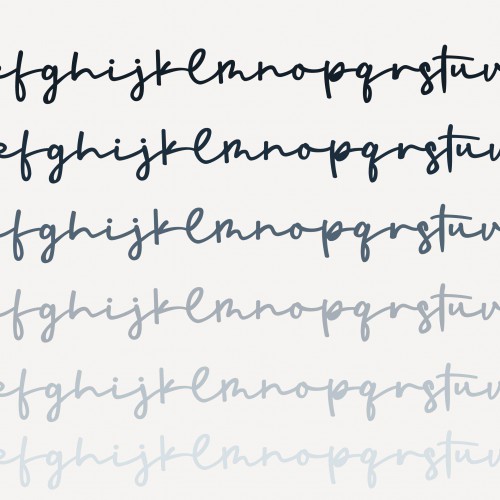 efghijklmnopqrstuv
efghijklmnopqrstuv
efghijklmnopqrstuv
efghijklmnopqrstuv
efghijklmnopqrstuv
efghijklmnopqrstuv